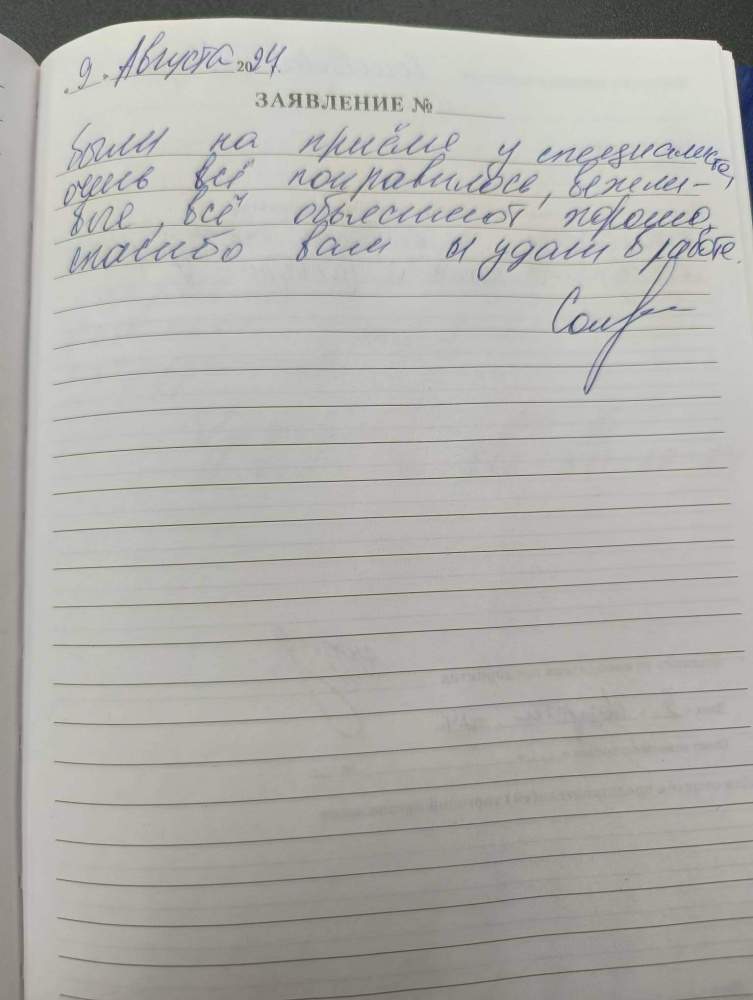 9. Августа 2024.
ЗАЯВЛЕНИЕ №
Были на приёме у специалиста,
очень всё понравилось, вежли-
вые, всё объясняют хорошо,
спасибо вам и удачи в работе.